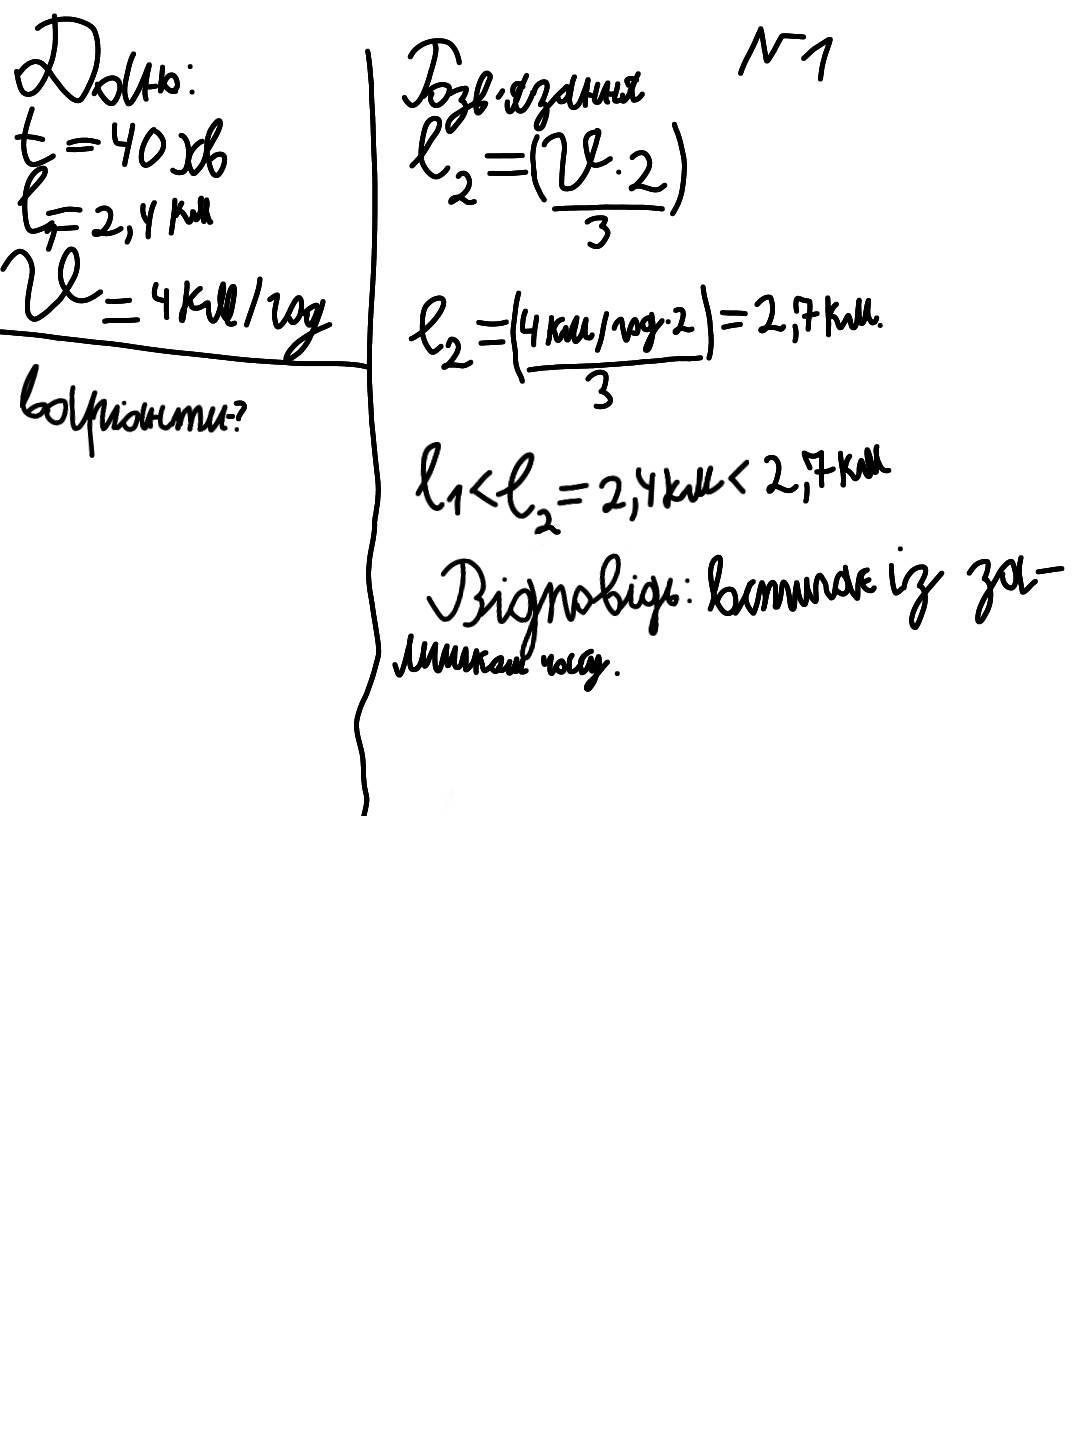 Дано:
t = 40 хв
l₁ = 2,4 км
V = 4 км/год
варіанти-?
N1
Розв'язання
l₂ = (V · 2)
3
l₂ = (4 км/год · 2) = 2,7 км.
3
l₁ < l₂ = 2,4 км < 2,7 км
Відповідь: встигає із за-
лишком часу.